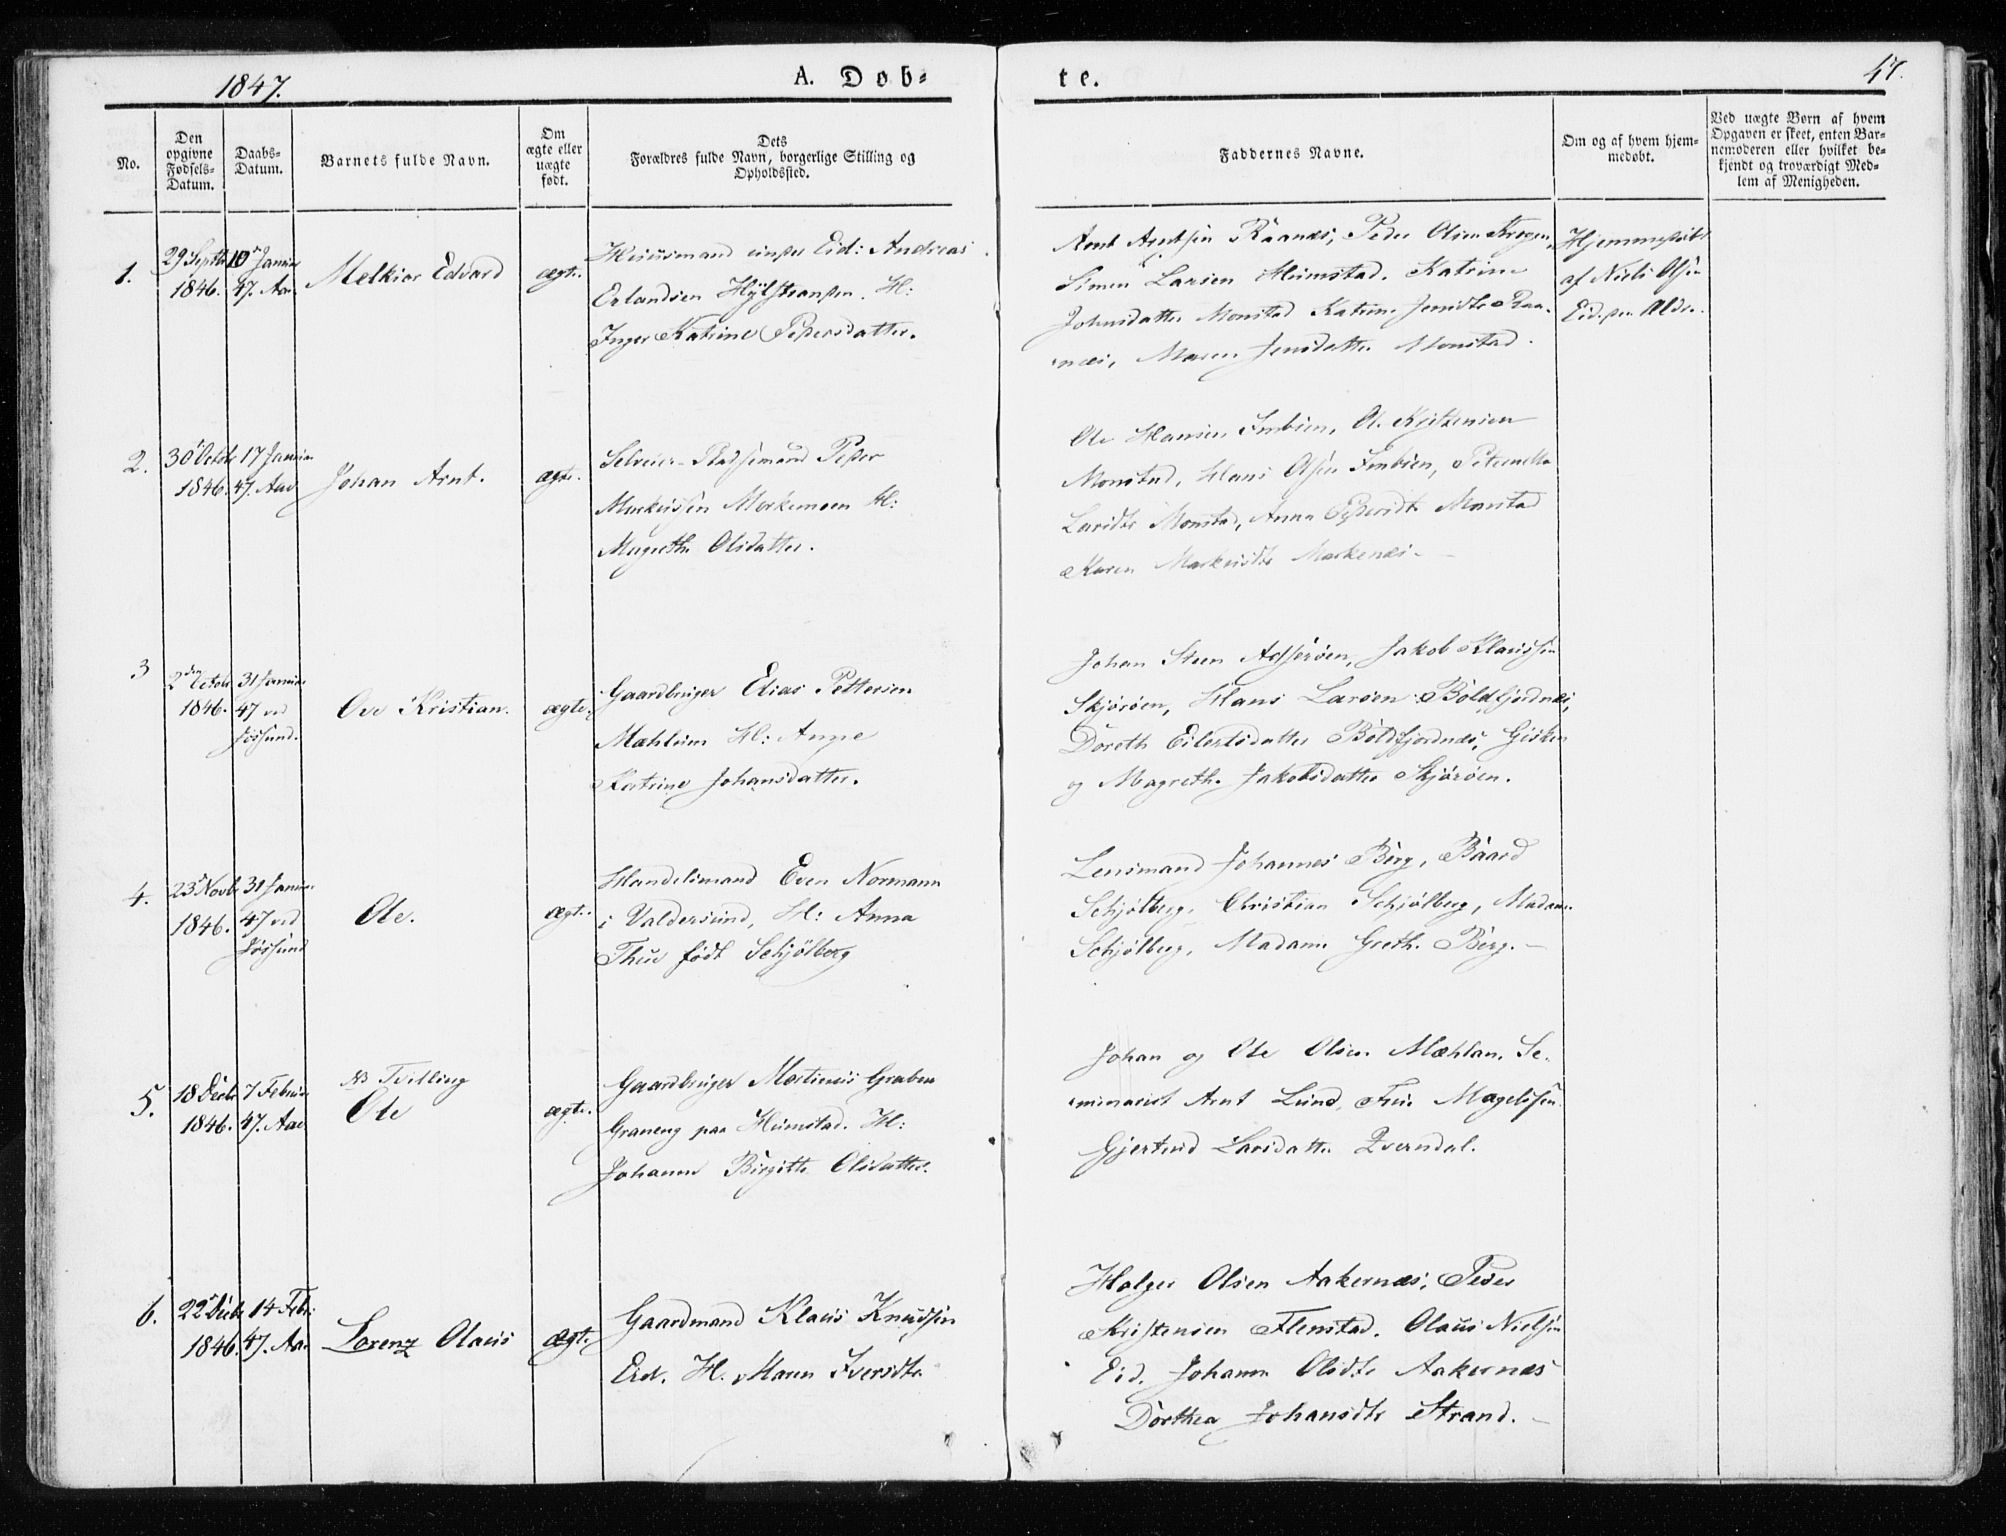 1847.
A. Døb-
te.
47.
No.
Den opgivne Fødsels-Datum.
Daabs-Datum.
Barnets fulde Navn.
Om ægte eller uægte født.
Dets
Forældres fulde Navn, borgerlige Stilling og
Opholdssted.
Faddernes Navne.
Om og af hvem hjem-
medøbt.
Ved uægte Børn af hvem
Opgaven er skeet, enten Bar-
nemoderen eller hvilket be-
kjendt og troværdigt Med-
lem af Menigheden.
1.
29 Septbr
1846.
10 Januar
47. Aa.
Melkior Edvard
ægte.
Huusmand Eid: Andreas
Erlandsen H:
Inger Katrine Pedersdatter.
Arnt Arntsen Raanæs, Peder Olsen
Simen Larsen Humstad. Katrine
Johnsdatter Monstad Katrine Jensdtr Raa-
næs, Maren Jensdatter Monstad.
Hjemmedøbt
af Niels Olsen
Eid.
2.
30 Octobr
1846.
17 Januar
47. Aae
Johan Arnt.
ægte.
Selveier-Pladsemand Peder
Markussen H:
Magrethe Olsdatter.
Ole Hansen Ole Kristensen
Monstad, Hans Olsen Peternella
Larsdtr Monstad, Anna Pedersdtr Monstad
Karen Markusdtr
3
2den Octobr
1846.
31 Januar
47 ved
Jøssund.
Ove Kristian.
ægte.
Gaardbruger Elias Pettersen
Mæhlum H: Anne
Katrine Johansdatter.
Johan Steen Jakob Klaussen
Skjørøen, Hans Larsen Boldfjordnæs,
Doreth Eilertsdatter Boldfjordnæs, Gisken
og Magrethe Jakobsdatter Skjørøen.
4.
23 Novbr
1846.
31 Januar
47 ved
Jøssund
Ole.
ægte.
Handelsmand Even Normann
i Valdersund, H: Anna
Thue født Schjølberg
Lensmand Johannes Berg, Baard
Schjølberg, Christian Schjølberg, Madam
Schjølberg, Madam Grethe Berg.
5.
18 Decbr
1846.
7 Februar
47. Aae
NB Tvilling
Ole
ægte.
Gaardbruger Martinus Graben
Graneng paa Humstad. H:
Johanna Birgitte Olsdatter.
Johan og Ole Olsen Mæhlan. Se-
minarist Arnt Lund, Frue Magelssen.
Gjertrud Larsdatter Qverndal.
6.
22 Decbr
1846.
14 Febr:
47. Aa.
Lorenz Olaus
ægte.
Gaardmand Klaus Knudsen
Eid. H. Maren Iversdtr
Holger Olsen Aakernæs, Peder
Kristensen Flenstad. Olaus Nielsen
Eid. Johanna Olsdtr Aakernæs
Dorthea Johansdtr Strand.